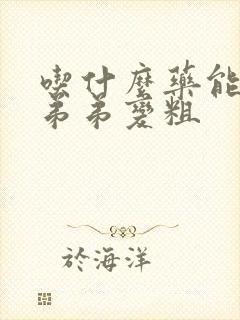 喫什麼藥能
弟弟變粗
於海洋